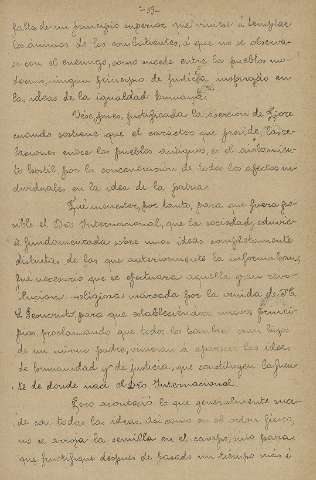 -59-
falta de un principio superior que viniese á templar
los animos de los combatientes, á que no se observa-
se con el enemigo, como sucede entre los pueblos mo-
dernos, ningun principio de justicia inspirado en
las ideas de la igualdad humana
Vése, pues, justificada la asercion de Fiore
cuando sostiene que el caracter que preside las re-
laciones entre los pueblos antiguos, es el aislamiento
hostil por la concentracion de todos los afectos in-
dividuales en la idea de la patria.
Fué menester, por tanto, para que fuera po-
sible el Dro Internacional, que la sociedad, estuvie-
se fundamentada sobre unas ideas completamente
distintas de las que anteriormente la informaban,
fué necesario que se efectuara aquella gran revo-
lucion religiosa iniciada por la venida de
J. Jesucristo para que estableciendo nuevos princi-
pios, proclamando que todos los hombres son hijos
de un mismo padre, vinieran á aparecer las ideas
de humanidad y de justicia, que constituyen la fuen-
te de donde nace el Dro Internacional.
Pero aconteció lo que generalmente suce-
de con todas las ideas, así como en el orden físico,
no se arroja la semilla en el campo, sino para
que fructifique despues de pasado un tiempo mas ó